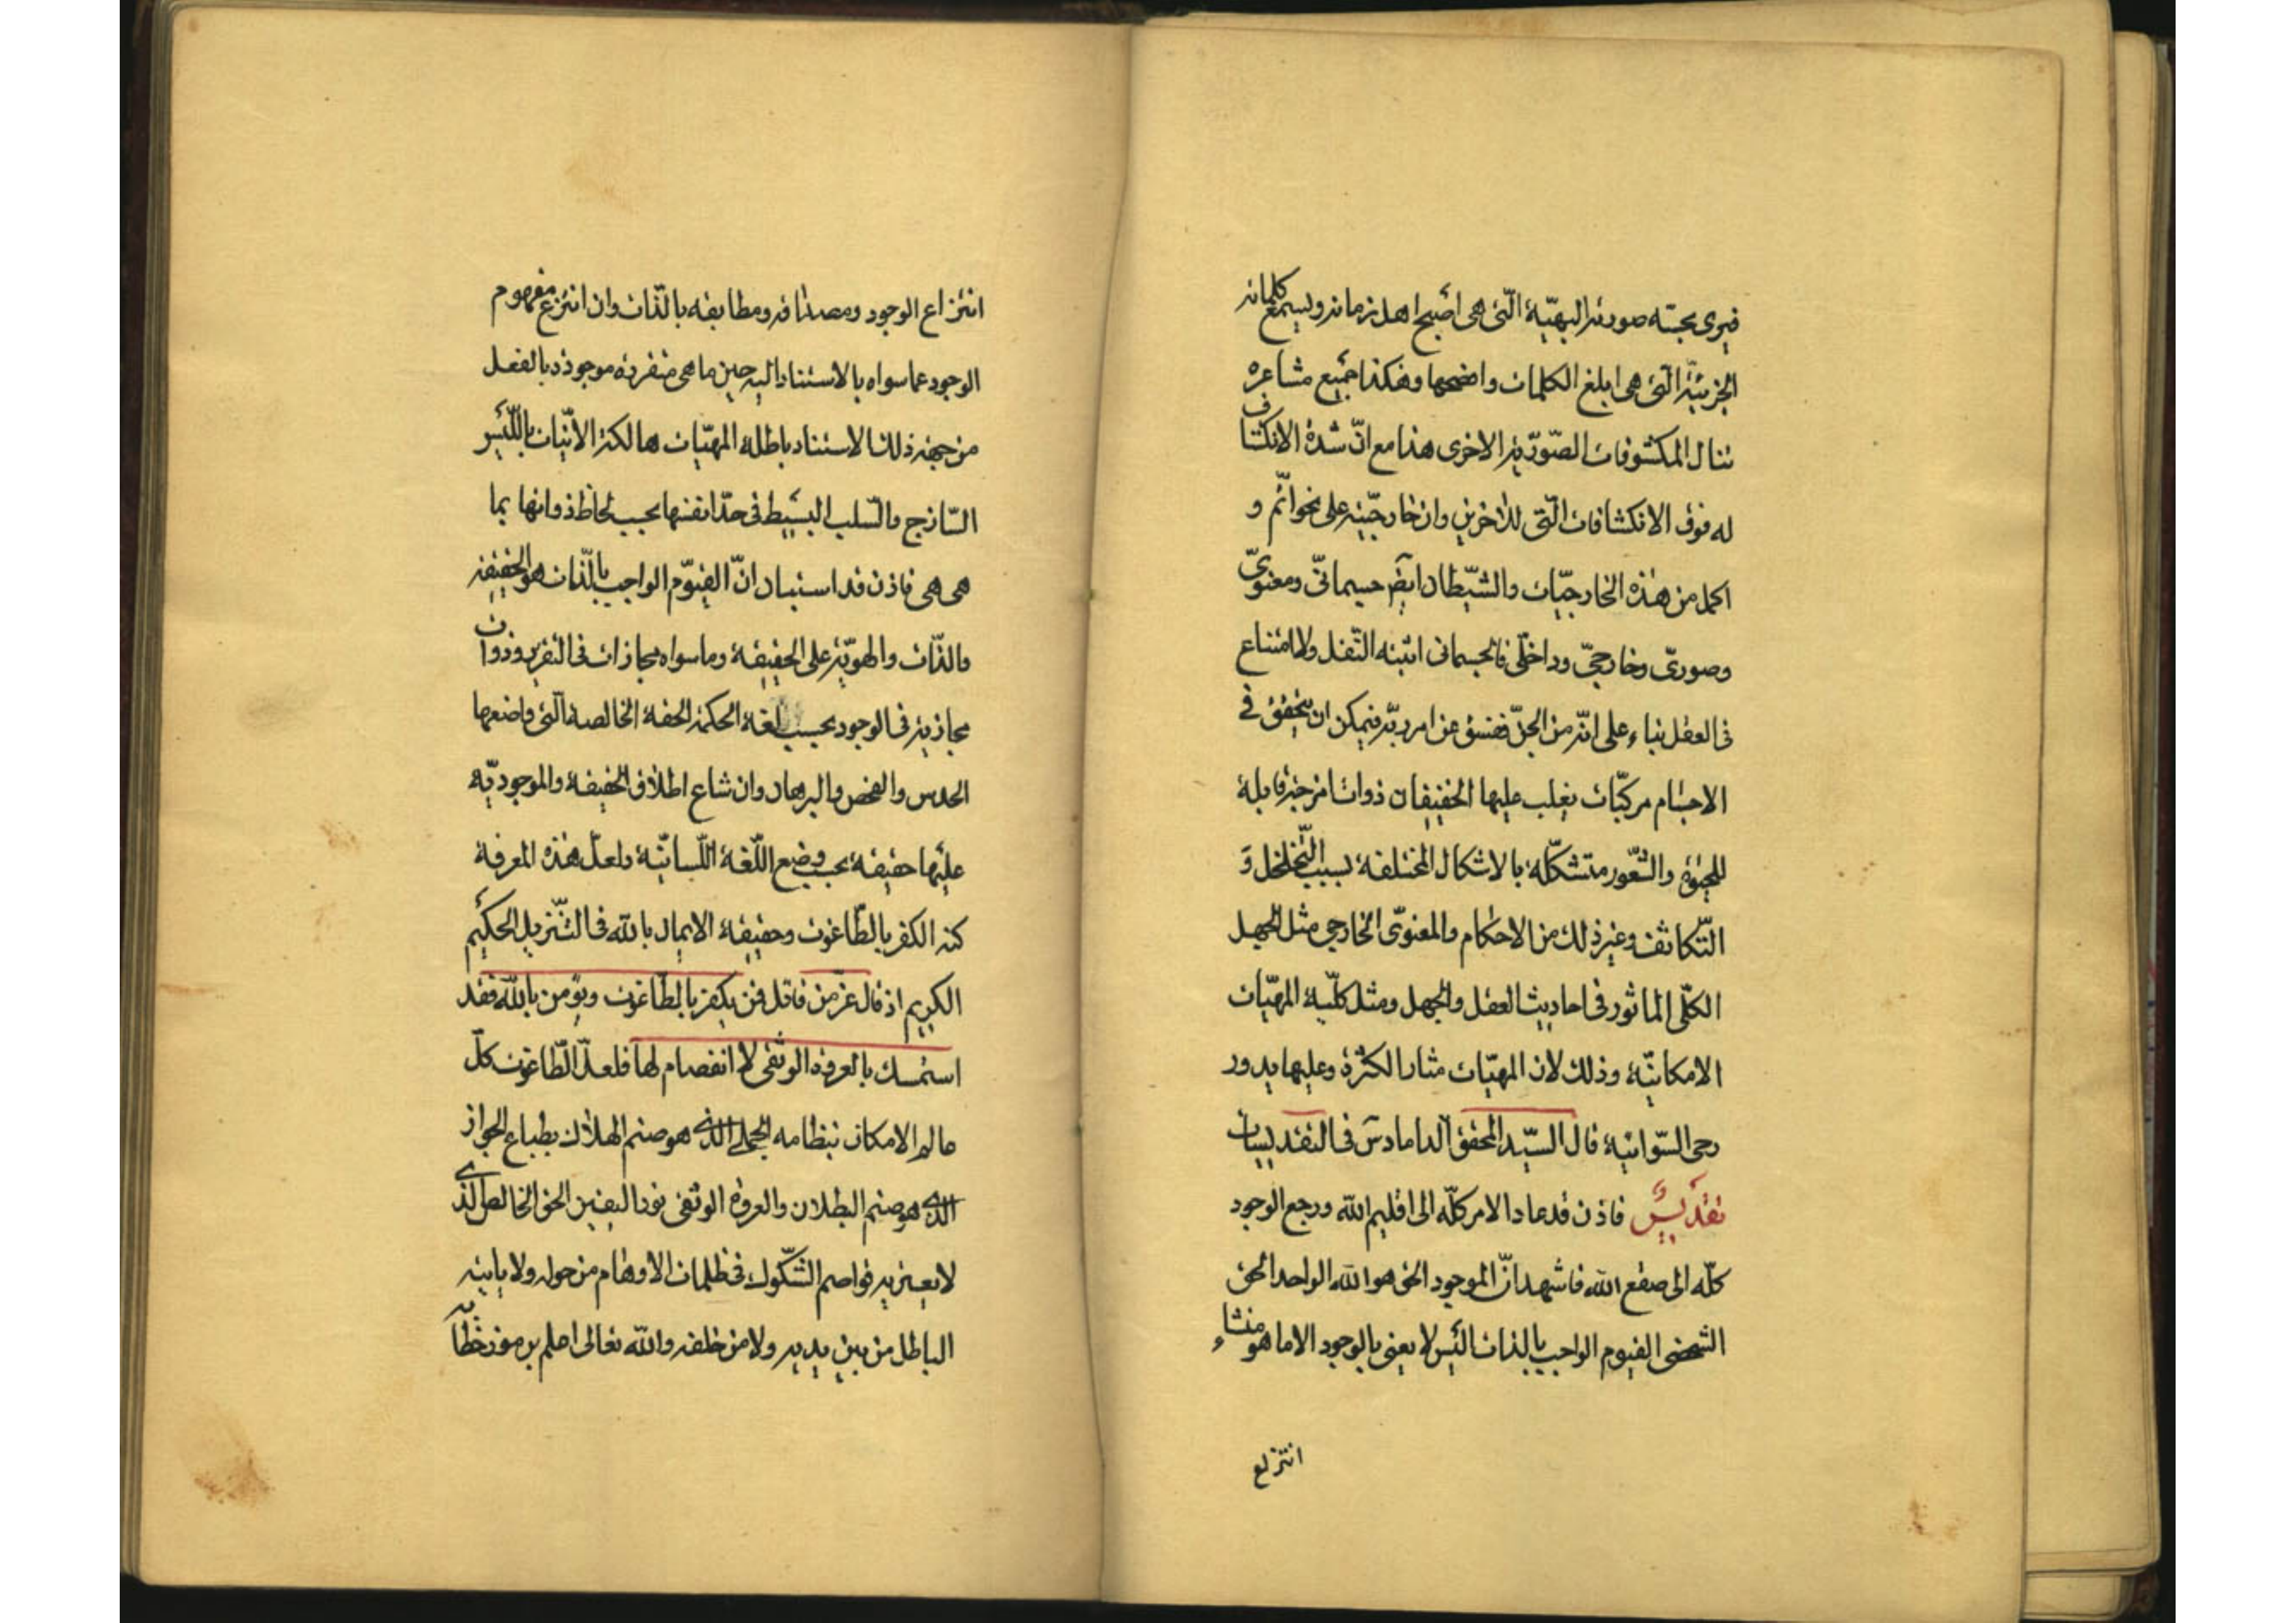 فيرى بحسّه صورته البهيّة الّتى هى اصبح اهل زمانه ويسمع كلماته
الجزئيّة الّتى هى ابلغ الكلمات وافصحها وهكذا جميع مشاعره
تنال المكشوفات الصّوريّة الاخرى هذا مع انّ شدّة الانكشاف
له فوق الانكشافات الّتى للاخرين وان خارجيّته على نحو اتّم و
اكمل من هذه الخارجيّات والشّيطان ايضا جسمانىّ ومعنوىّ
وصورىّ وخارجىّ وداخلّى فالجسمانى اثبته النّقل ولا امتناع
فى العقل بناء على انّه من الجنّ ففسق عن امر ربّه فيمكن ان يتحقق فى
الاجسام مركبّات يغلب عليها الخفيفان ذوات امزجة قابلة
للحيوة والشّعور متشكّلة بالاشكال المختلفة بسبب التّخلخل و
التّكاثف وغير ذلك من الاحكام والمعنوّى الخارجى مثل الجهل
الكلّى الماثور فى احاديث العقل والجهل ومثل كلّية المهيّات
الامكانيّة وذلك لان المهيّات مثار الكثرة وعليها يدور
رحى السّوائية قال السيّد المحقق الداماد س فى التقديسات
تقديس فاذن قد عاد الامر كلّه الى اقليم الله ورجع الوجود
كلّه الى صقع الله فاشهد انّ الموجود الحق هو الله الواحد الحق
الشخصى القيوم الواجب بالذات اليس لا يعنى بالوجود الا ما هو منشاء
انتزاع
انتزاع الوجود ومصداقه ومطابقه بالذّات وان انتزع مفهوم
الوجود عما سواه بالاستناد اليه حين ما هى متفردة موجودة بالفعل
من جهة ذلك الاستناد باطلة المهيّات هالكة الانيّات بالليس
السّاذج والسّلب البسيط فى حدّ انفسها بحسب لحاظ ذواتها بما
هى هى فاذن قد استبان انّ القيّوم الواجب بالّذات هو الحقيقة
والذّات والهويّة على الحقيقة وما سواه مجازات فى التقرر وذوات
مجازية فى الوجود بحسب لغة الحكمة الحقة الخالصة الّتى واضعها
الحدس والفحص والبرهان وان شاع اطلاق الحقيقة والموجوديّة
عليها حقيقة بحسب وضع اللّغة اللّسانيّة ولعلّ هذه المعرفة
كنه الكفر بالطّاغوت وحقيقة الايمان بالله فى التّنزيل الحكيم
الكريم اذ قال عزّ من قائل فمن يكفر بالطّاغوت ويؤمن بالله فقد
استمسك بالعروة الوثقى لا انفصام لها فلعلّ الطّاغوت كلّ
عالم الامكان بنظامه الجملى الذى هو صنم الهلاك بطباع الجواز
الذى هو صنم البطلان والعروة الوثقى نور اليقين الحق الخالص الذى
لا يعتريه قواصم الشّكوك فى ظلمات الاوهام من حوله ولا ياتيه
الباطل من بين يديه ولا من خلفه والله تعالى اعلم برموز خطابه